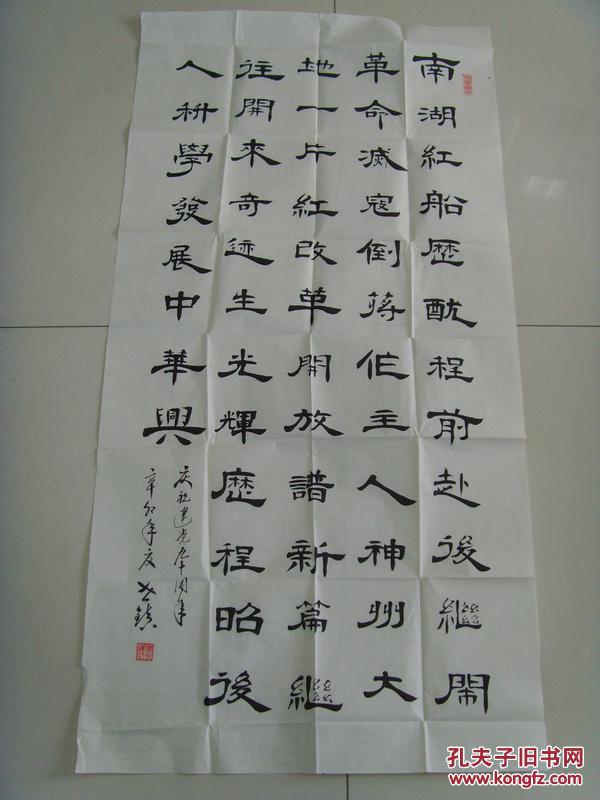 南湖紅船歷酖程前赴後繼鬧
革命滅寇倒蔣作主人神州大
地一片紅改革開放譜新篇繼
往開來奇迹生光輝歷程昭後
人科學發展中華興
庆祝建党九十周年
辛卯年夏
孔夫子旧书网
www.kongfz.com